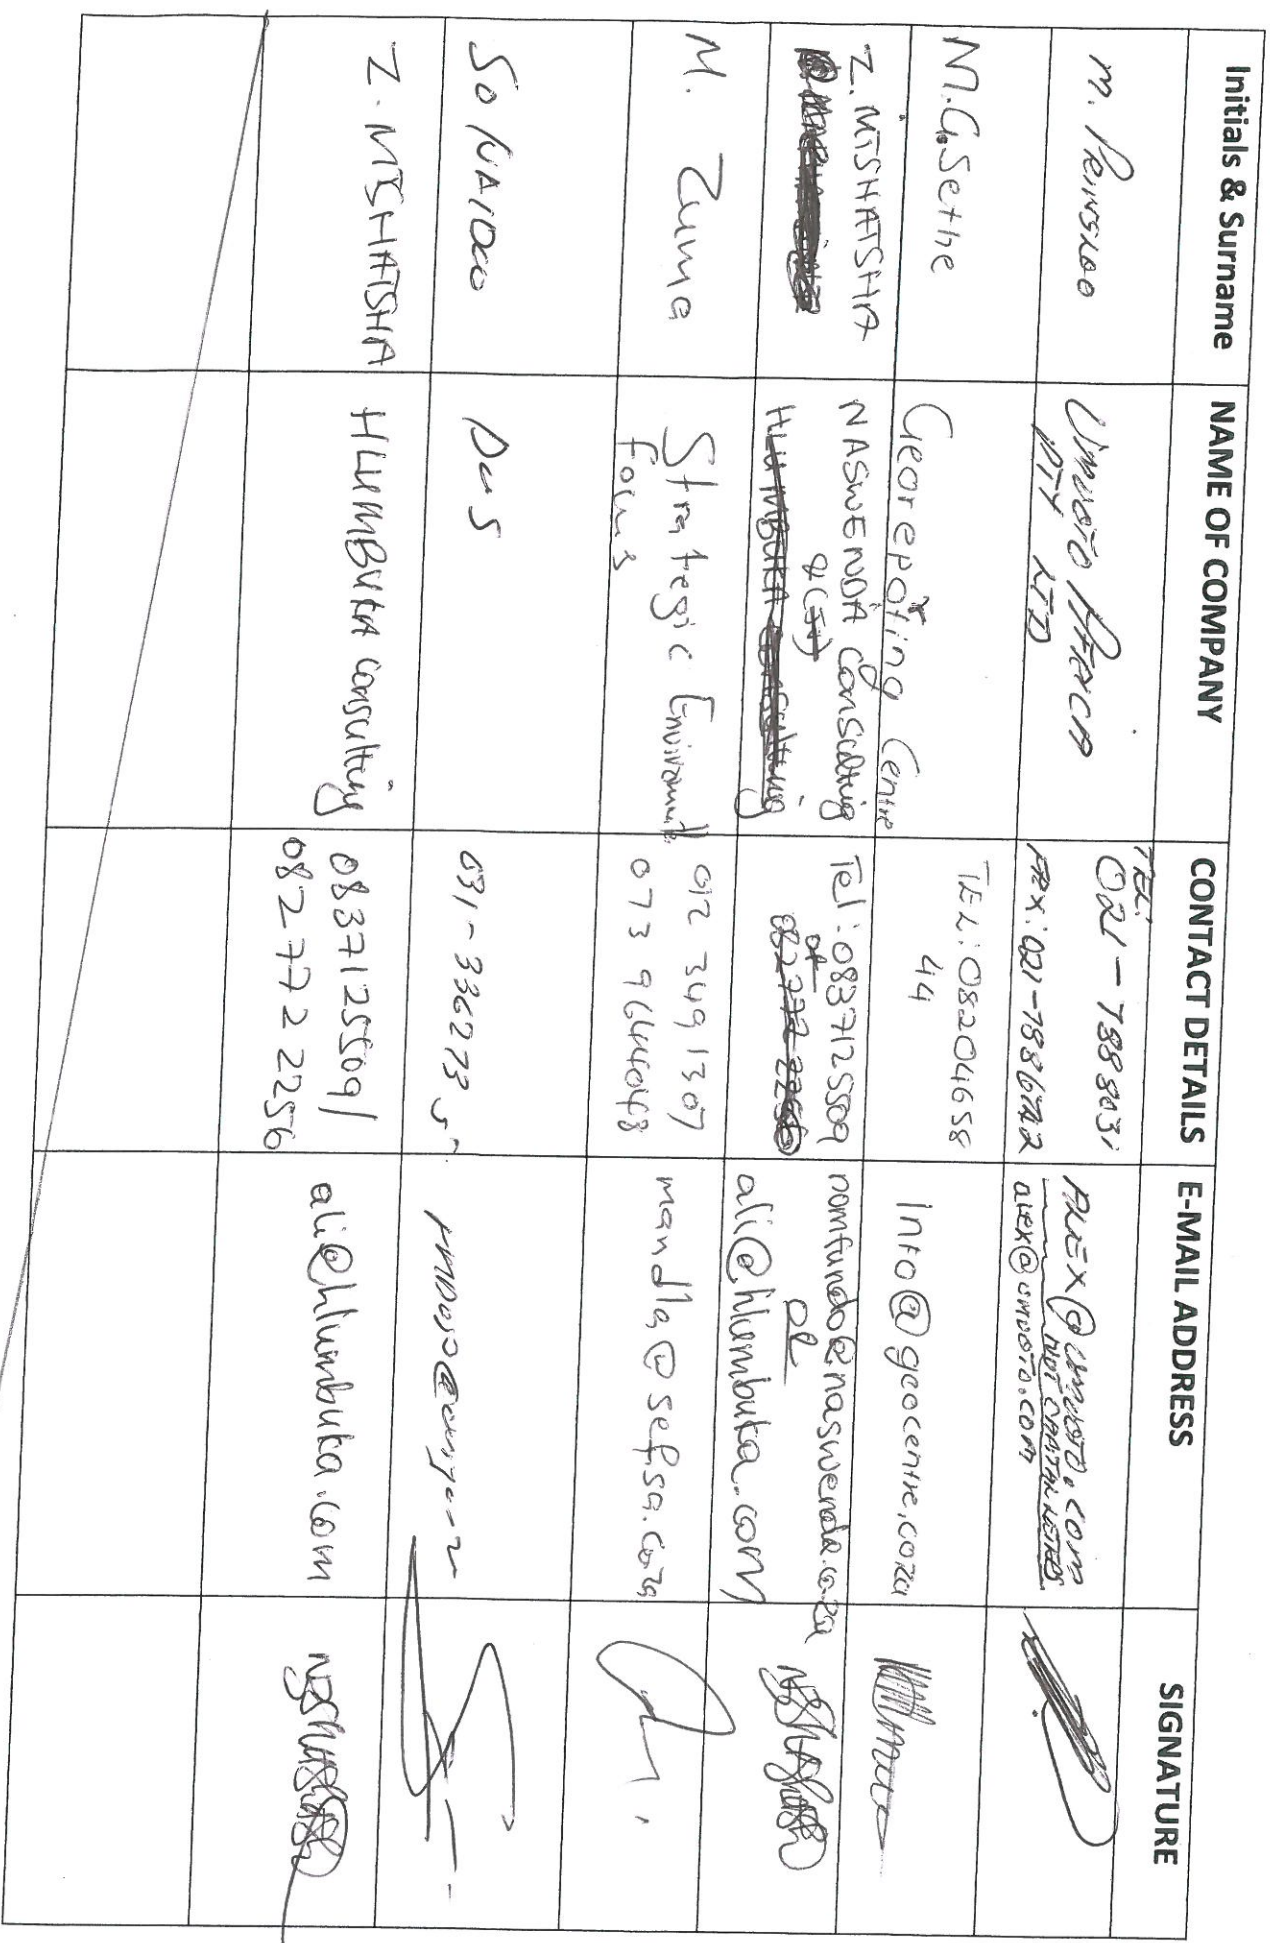 Initials & Surname NAME OF COMPANY CONTACT DETAILS E-MAIL ADDRESS SIGNATURE
M. PRINSLOO
UMVOTO AFRICA
PTY LTD
TEL:
021-7888031
FAX: 021-7886742
ALEX@UMVOTO.COM
NOT CAPITAL LETTERS
alex@umvoto.com
M.G.Sethe
Georepoting Centre
TEL: 08204658
44
Info@geocentre.coza
Z. MTSHATSHA
NASWENDA consulting
&(JV)
HLUMBUKA consulting
Tel: 0837125509
or
082772 2256
nomfundo@naswenda.co.za
or
ali@hlumbuka.com
M. Zuma
Strategic Environmental
Focus
012 349 1307
073 9644048
mandla@sefsa.co.za
SO NAIDOO
031-3362735
Z. MTSHATSHA
HLUMBUKA consulting
0837125509/
082 772 2256
ali@hlumbuka.com